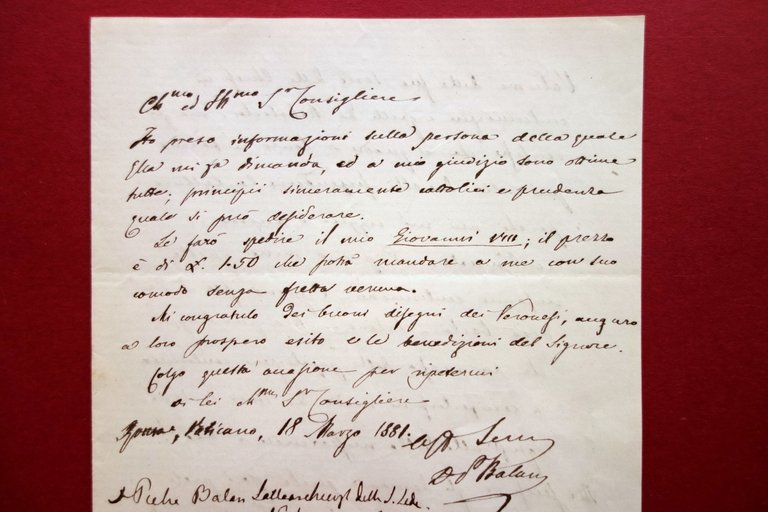 Ch.mo ed Ill.mo Sr Consigliere
Ho preso informazioni sulla persona della quale
Ella mi fa dimanda, ed a mio giudizio sono ottime
tutte; principii sinceramente cattolici e prudenza
quale si può desiderare.
Le farò spedire il mio Giovanni VIII; il prezzo
è di £. 1.50 che potrà mandare a me con suo
comodo senza fretta veruna.
Mi congratulo dei buoni disegni dei Veronesi, auguro
a loro prospero esito e le benedizioni del Signore.
Colgo questa occasione per ripetermi
di lei Ch.mo Sr Consigliere
Roma, Vaticano, 18 Marzo 1881.
Serv
D P Balan
Pietro Balan